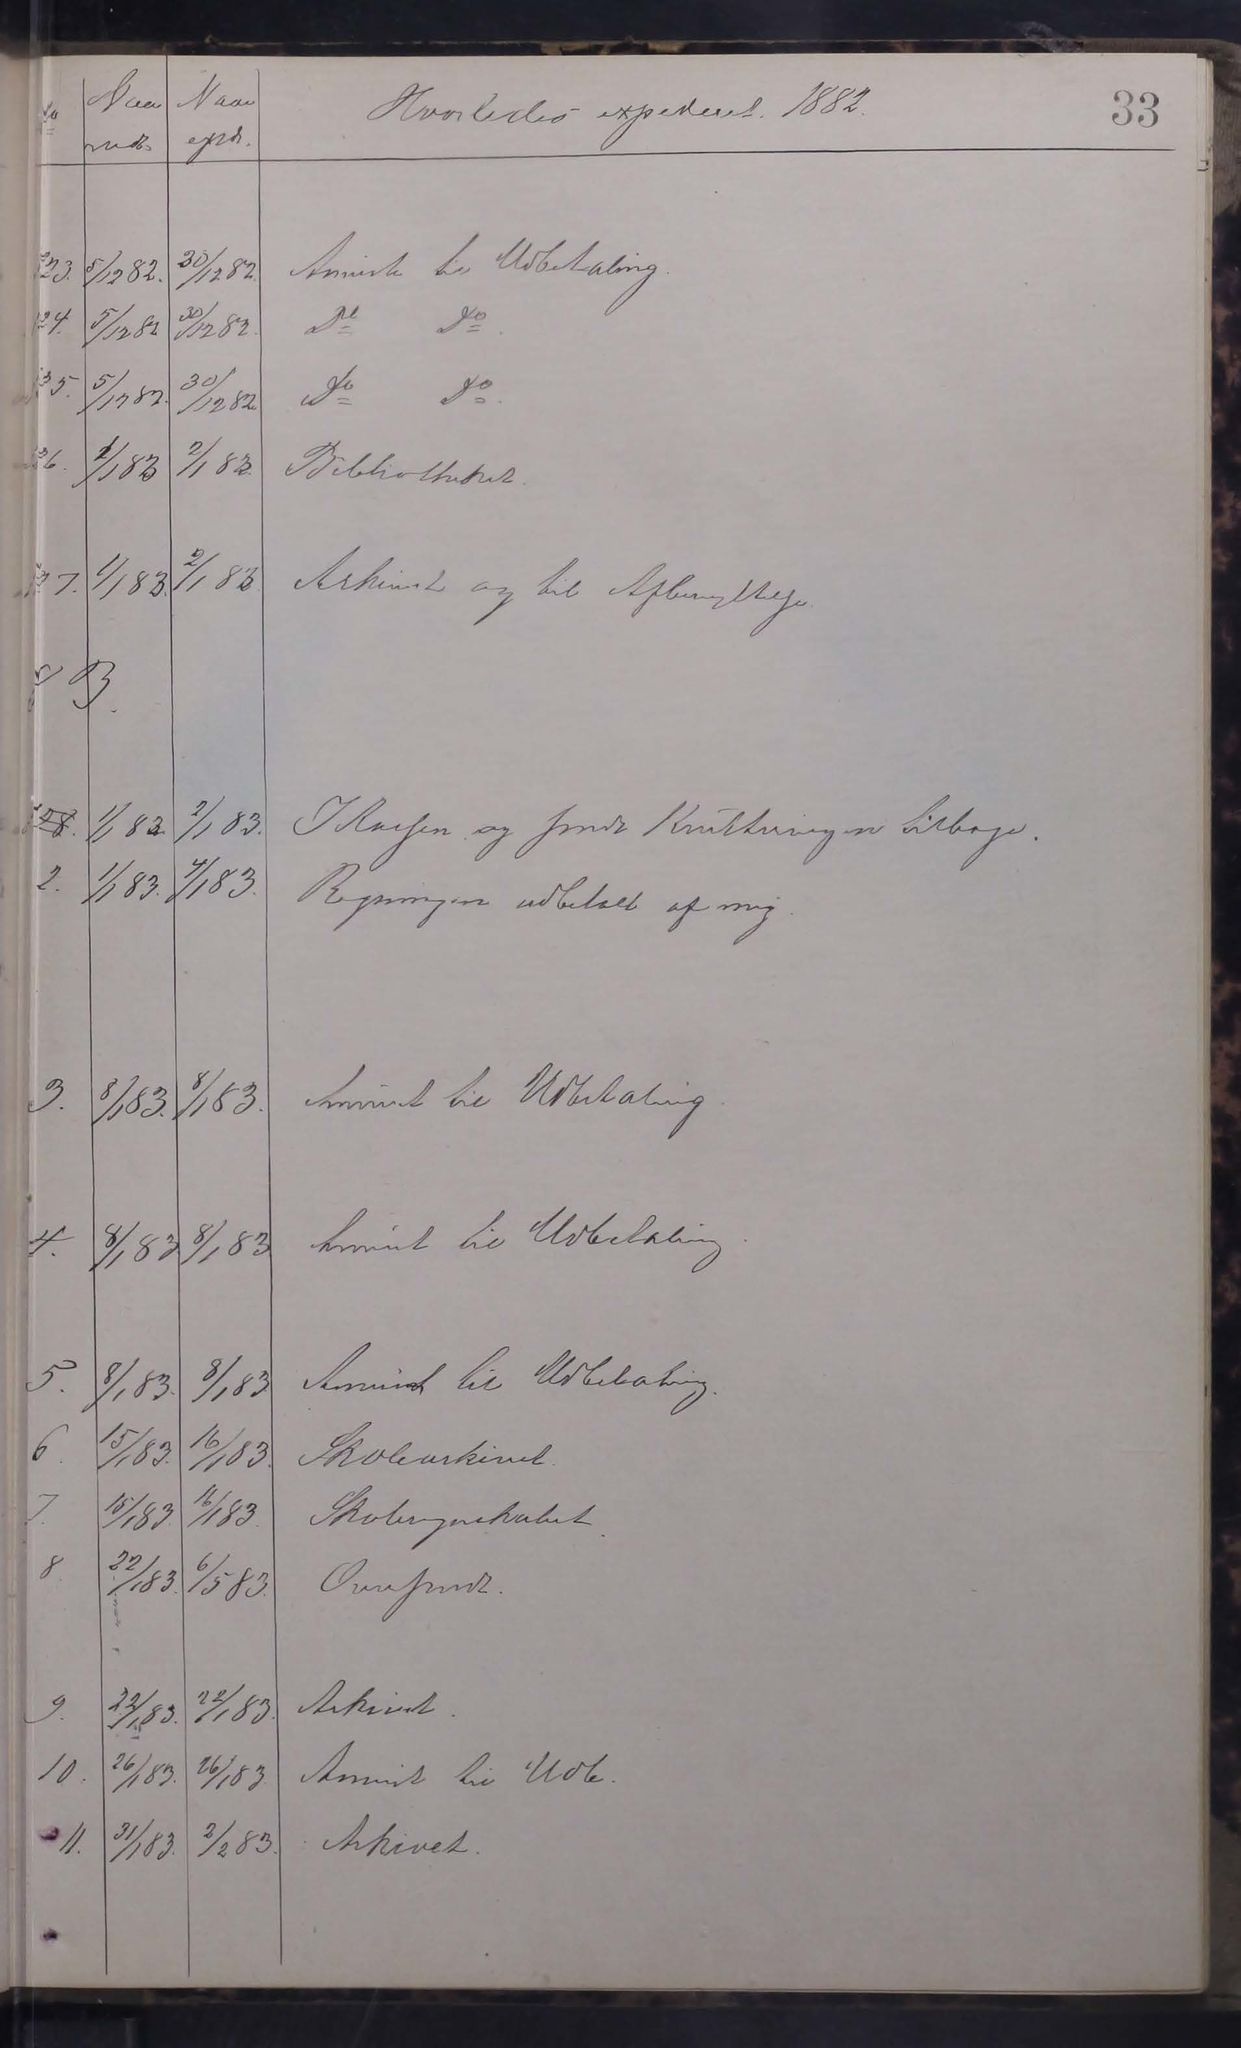 No Naar Naar Hvorledes expederet. 1882. 33
modt. expd.
23. 5/12 82. 30/12 82. Anvist til Udbetaling.
24. 5/12 82 30/12 82. Do Do.
25. 5/12 82. 30/12 82. Do Do.
26. 1/1 83 2/1 83. Bibliotheket.
27. 1/1 83. 2/1 83. Arkivet og til Afbenyttelse.
83.
28. 1/1 83. 2/1 83. I Kassen og sendt Kvitteringen tilbage.
2. 1/1 83. 4/1 83. Regningen udbetalt af mig.
3. 8/1 83. 8/1 83. Anvist til Udbetaling.
4. 8/1 83 8/1 83 Anvist til Udbetaling.
5. 8/1 83. 8/1 83 Anvist til Udbetaling.
6. 15/1 83. 16/1 83. Skolearkivet.
7. 15/1 83. 16/1 83. Skoleregnskabet.
8. 22/1 83. 6/5 83. Oversendt.
9. 22/1 83. 22/1 83. Arkivet.
10. 26/1 83. 26/1 83. Anvist til Udb.
11. 31/1 83. 2/2 83. Arkivet.